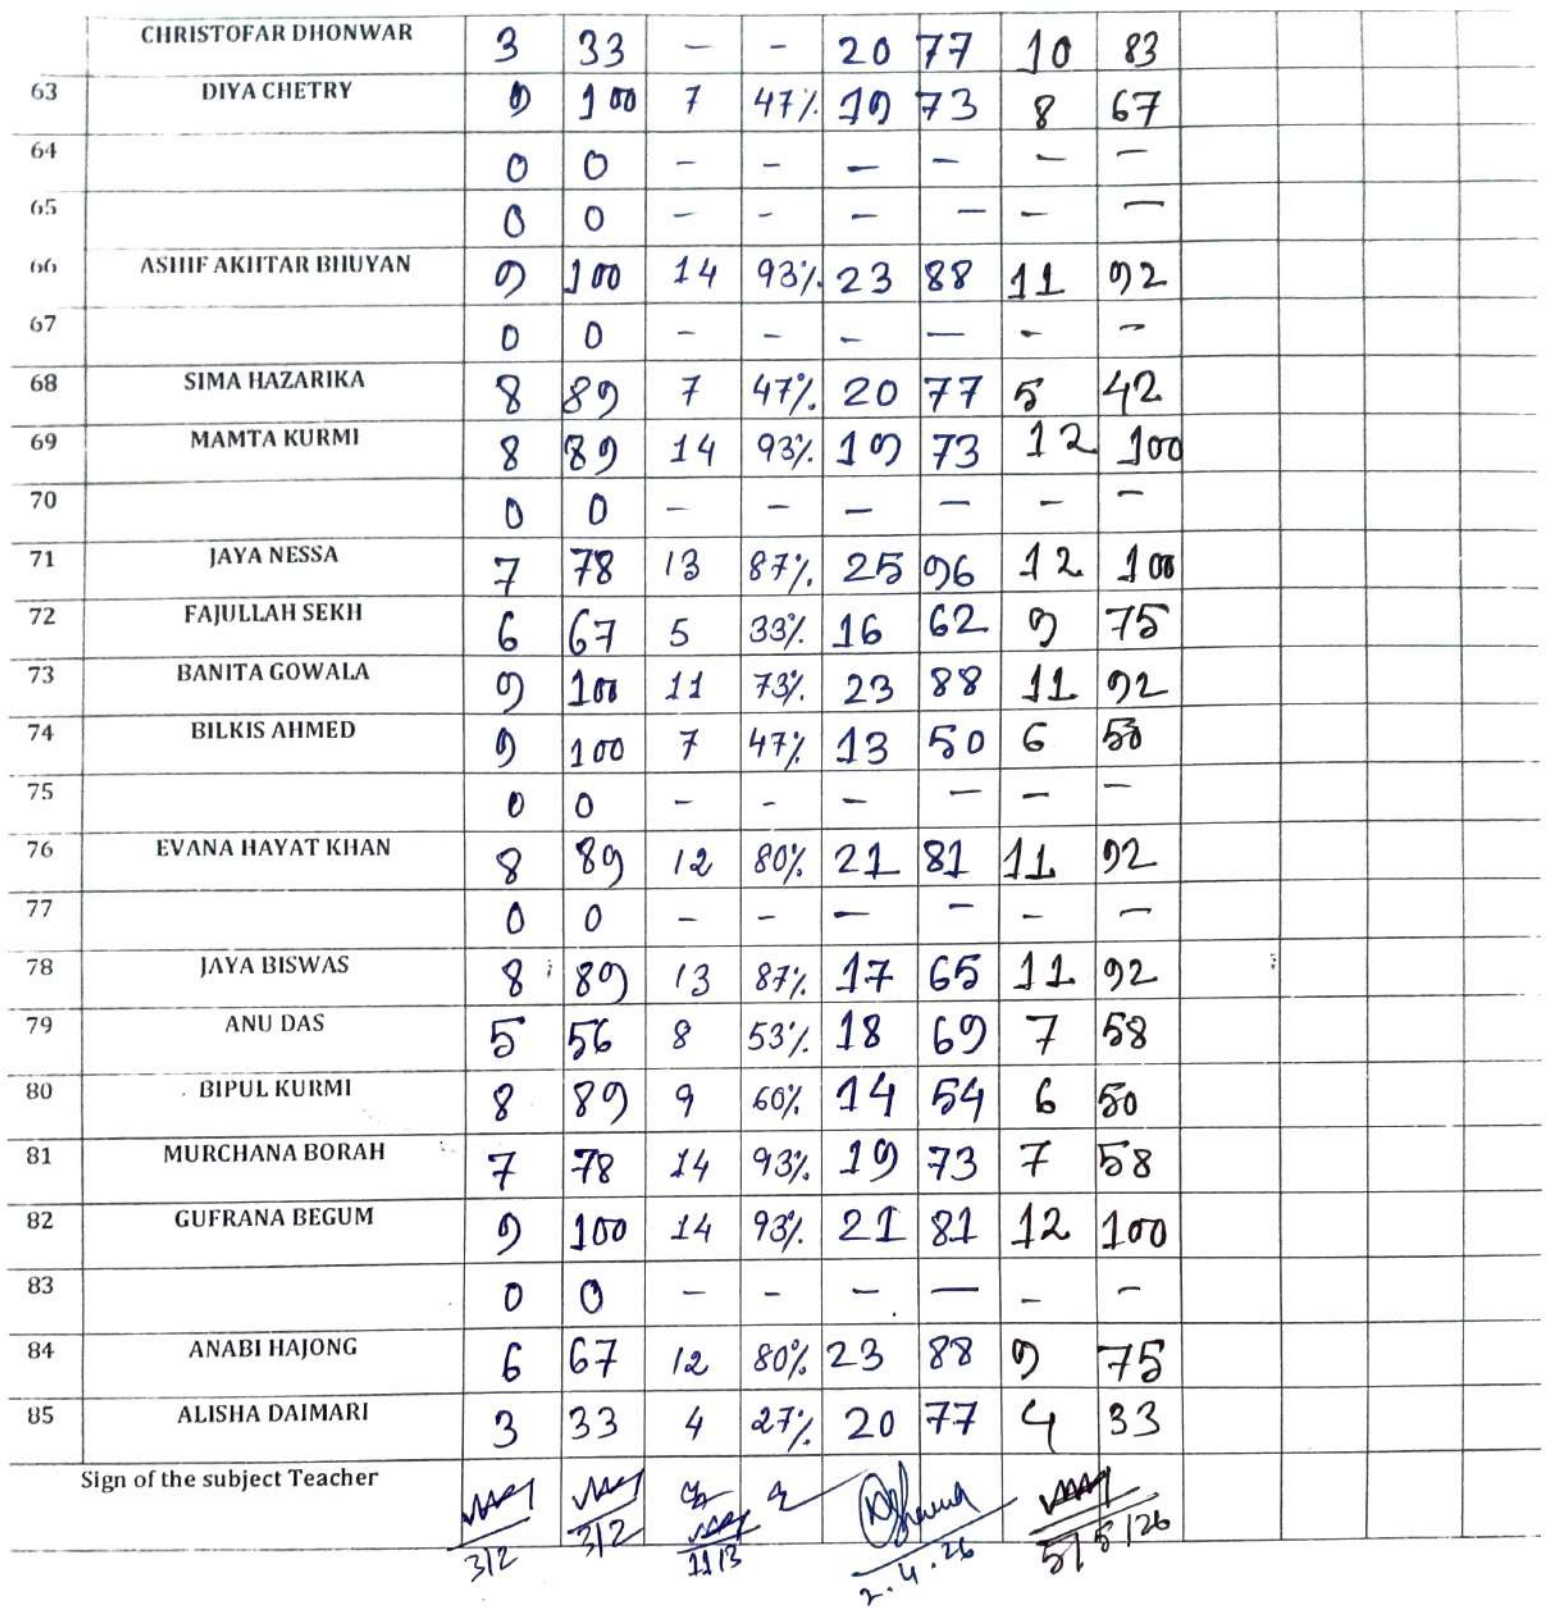 CHRISTOFAR DHONWAR 3 33 – – 20 77 10 83
63 DIYA CHETRY 9 100 7 47% 19 73 8 67
64 0 0 – – – – – –
65 0 0 – – – – – –
66 ASHIF AKHTAR BHUYAN 9 100 14 93% 23 88 11 92
67 0 0 – – – – – –
68 SIMA HAZARIKA 8 89 7 47% 20 77 5 42
69 MAMTA KURMI 8 89 14 93% 19 73 12 100
70 0 0 – – – – – –
71 JAYA NESSA 7 78 13 87% 25 96 12 100
72 FAJULLAH SEKH 6 67 5 33% 16 62 9 75
73 BANITA GOWALA 9 100 11 73% 23 88 11 92
74 BILKIS AHMED 9 100 7 47% 13 50 6 50
75 0 0 – – – – – –
76 EVANA HAYAT KHAN 8 89 12 80% 21 81 11 92
77 0 0 – – – – – –
78 JAYA BISWAS 8 89 13 87% 17 65 11 92
79 ANU DAS 5 56 8 53% 18 69 7 58
80 BIPUL KURMI 8 89 9 60% 14 54 6 50
81 MURCHANA BORAH 7 78 14 93% 19 73 7 58
82 GUFRANA BEGUM 9 100 14 93% 21 81 12 100
83 0 0 – – – – – –
84 ANABI HAJONG 6 67 12 80% 23 88 9 75
85 ALISHA DAIMARI 3 33 4 27% 20 77 4 33
Sign of the subject Teacher
3/2 3/2 11/3 2.4.26 5/5/26